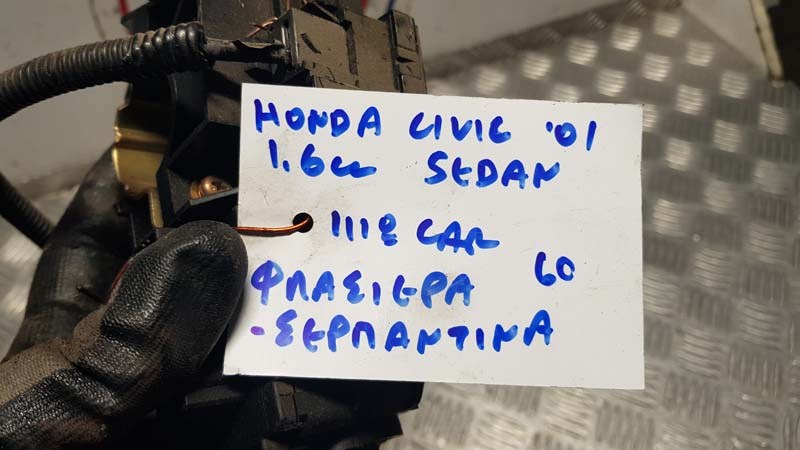 HONDA CIVIC '01
1.6cc SEDAN
1118 CAR
60
ΦΛΑΣΙΕΡΑ
-ΣΕΡΠΑΝΤΙΝΑ